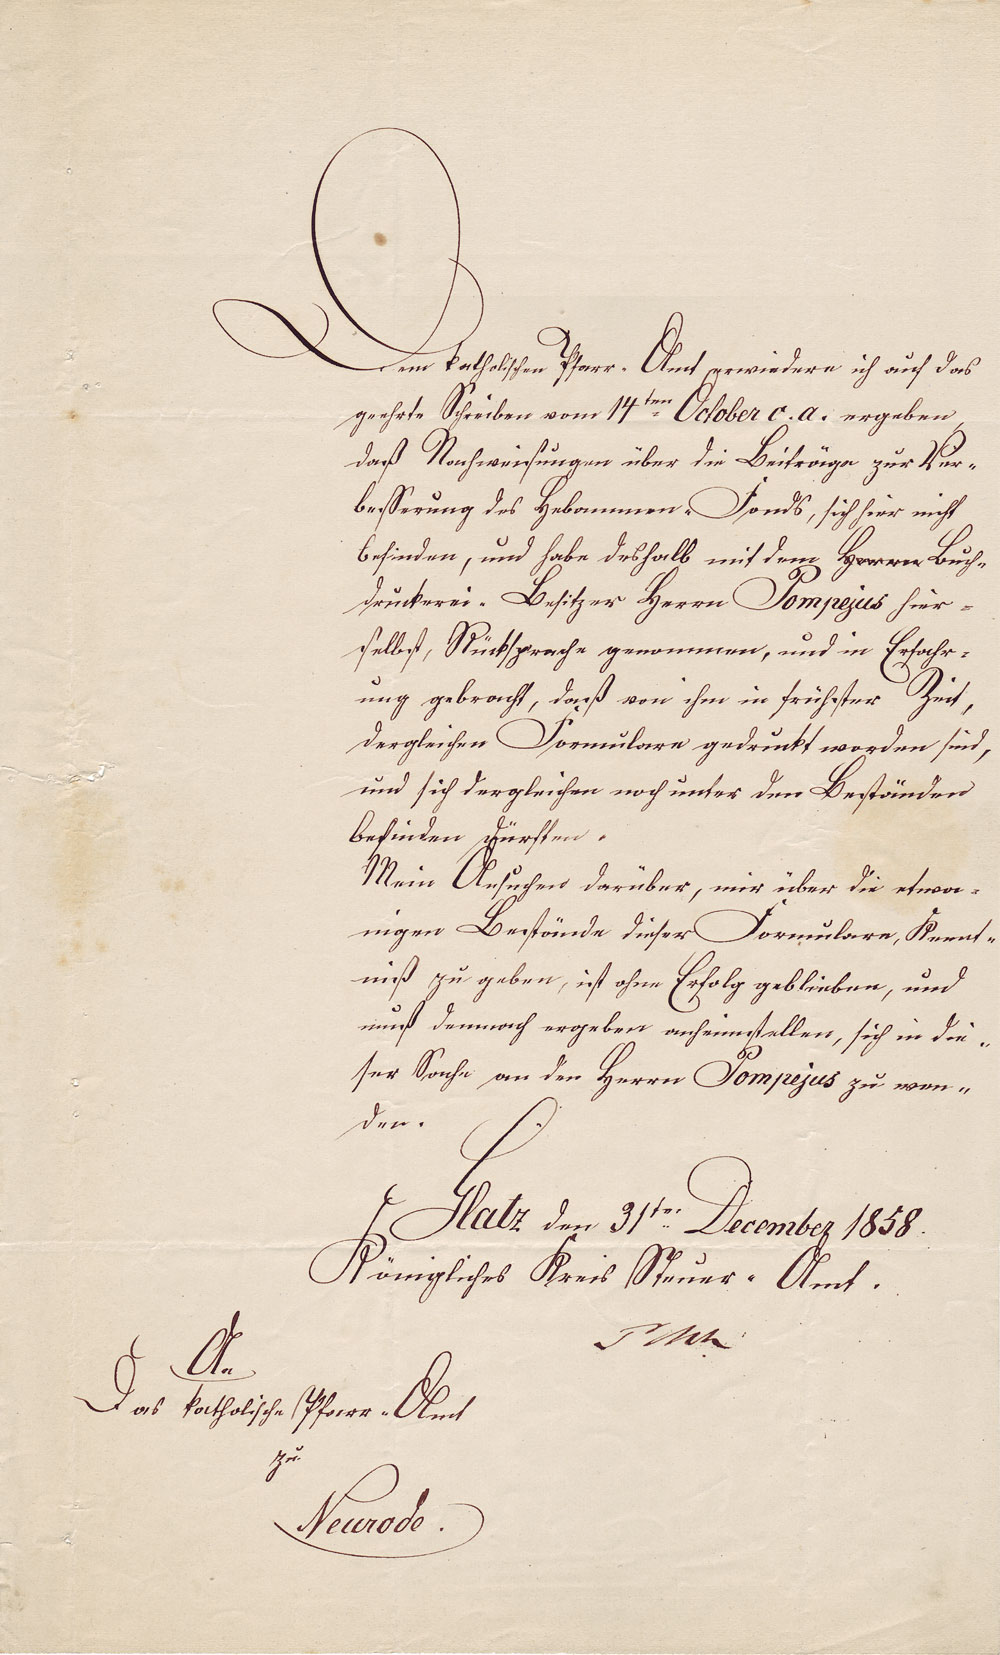 Dem katholischen Pfarr-Amt erwiedere ich auf das
geehrte Schreiben vom 14ten October c. a. ergeben,
daß Nachweisungen über die Beiträge zur Ver-
besserung des Hebammen-Fonds, sich hier nicht
befinden, und habe deshalb mit dem Herrn Buch-
druckerei-Besitzer Herrn Pompejus hier-
selbst, Rücksprache genommen, und in Erfahr-
ung gebracht, daß von ihm in frühster Zeit,
dergleichen Formulare gedruckt worden sind,
und sich dergleichen noch unter den Beständen
befinden dürften.
Mein Ansuchen darüber, mir über die etwa-
nigen Bestände dieser Formulare, Kennt-
niß zu geben, ist ohne Erfolg geblieben, und
muß demnach ergeben anheimstellen, sich in die-
ser Sache an den Herrn Pompejus zu wen-
den.
Glatz den 31ten December 1858.
Königliches Kreis Steuer-Amt.
An
Das katholische Pfarr-Amt
zu
Neurode.